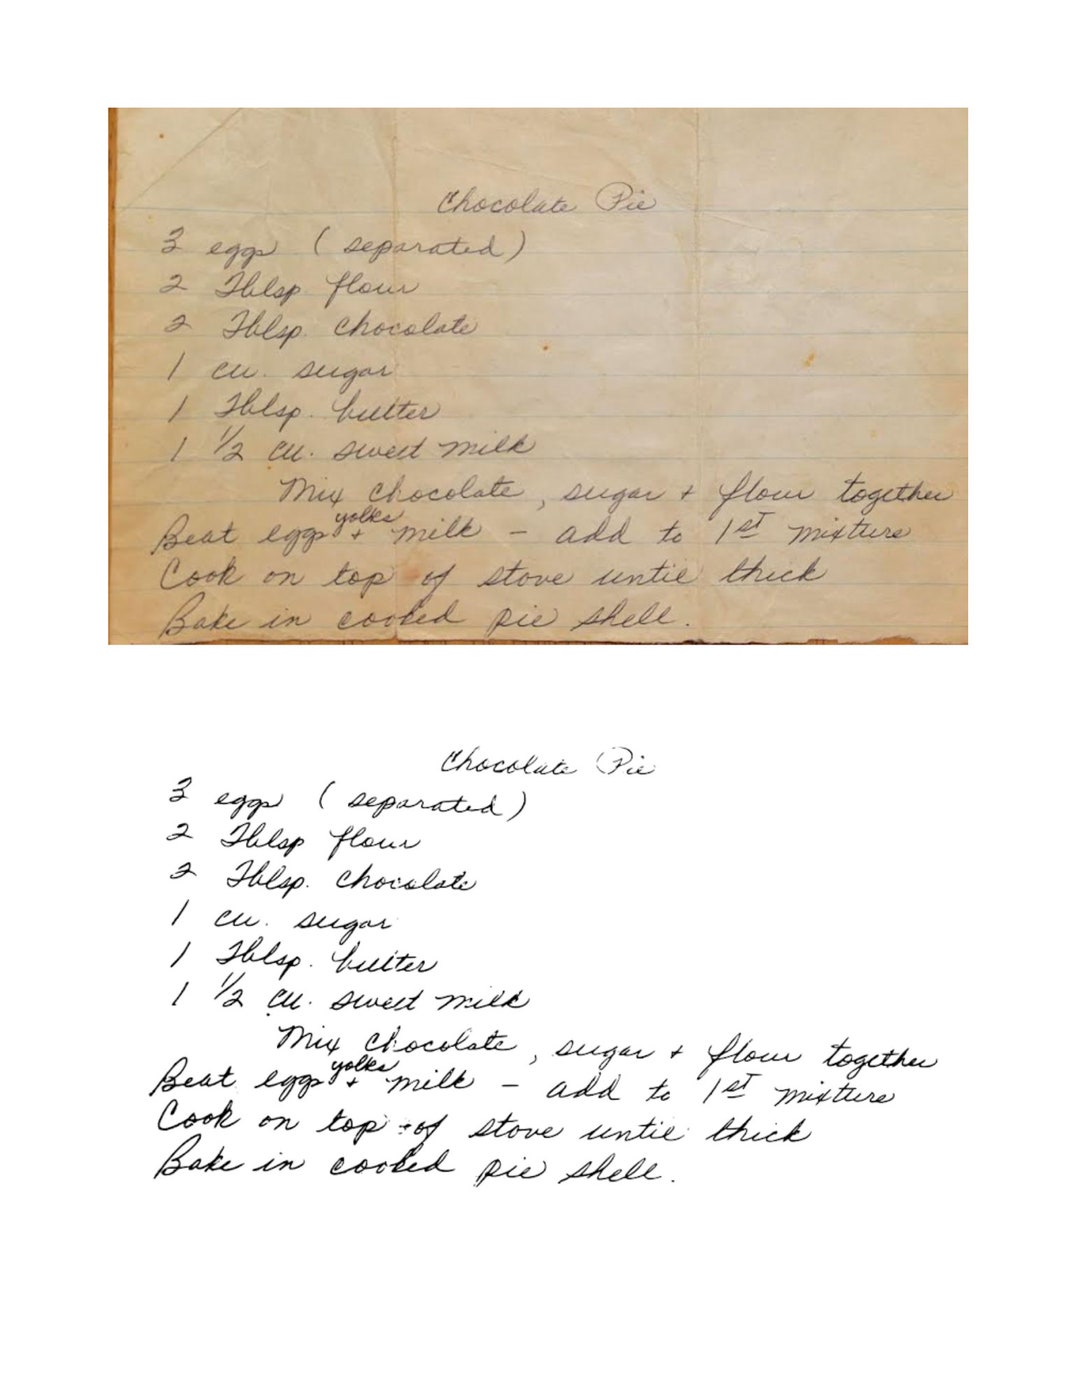 Chocolate Pie
3 eggs (separated)
2 Tblsp flour
2 Tblsp. chocolate
1 cu. sugar
1 Tblsp. butter
1 1/2 cu. sweet milk
Mix chocolate, sugar + flour together
Beat egg yolks + milk - add to 1st mixture
Cook on top of stove until thick
Bake in cooked pie shell.
Chocolate Pie
3 eggs (separated)
2 Tblsp flour
2 Tblsp. chocolate
1 cu. sugar
1 Tblsp. butter
1 1/2 cu. sweet milk
Mix chocolate, sugar + flour together
Beat egg yolks + milk - add to 1st mixture
Cook on top of stove until thick
Bake in cooked pie shell.